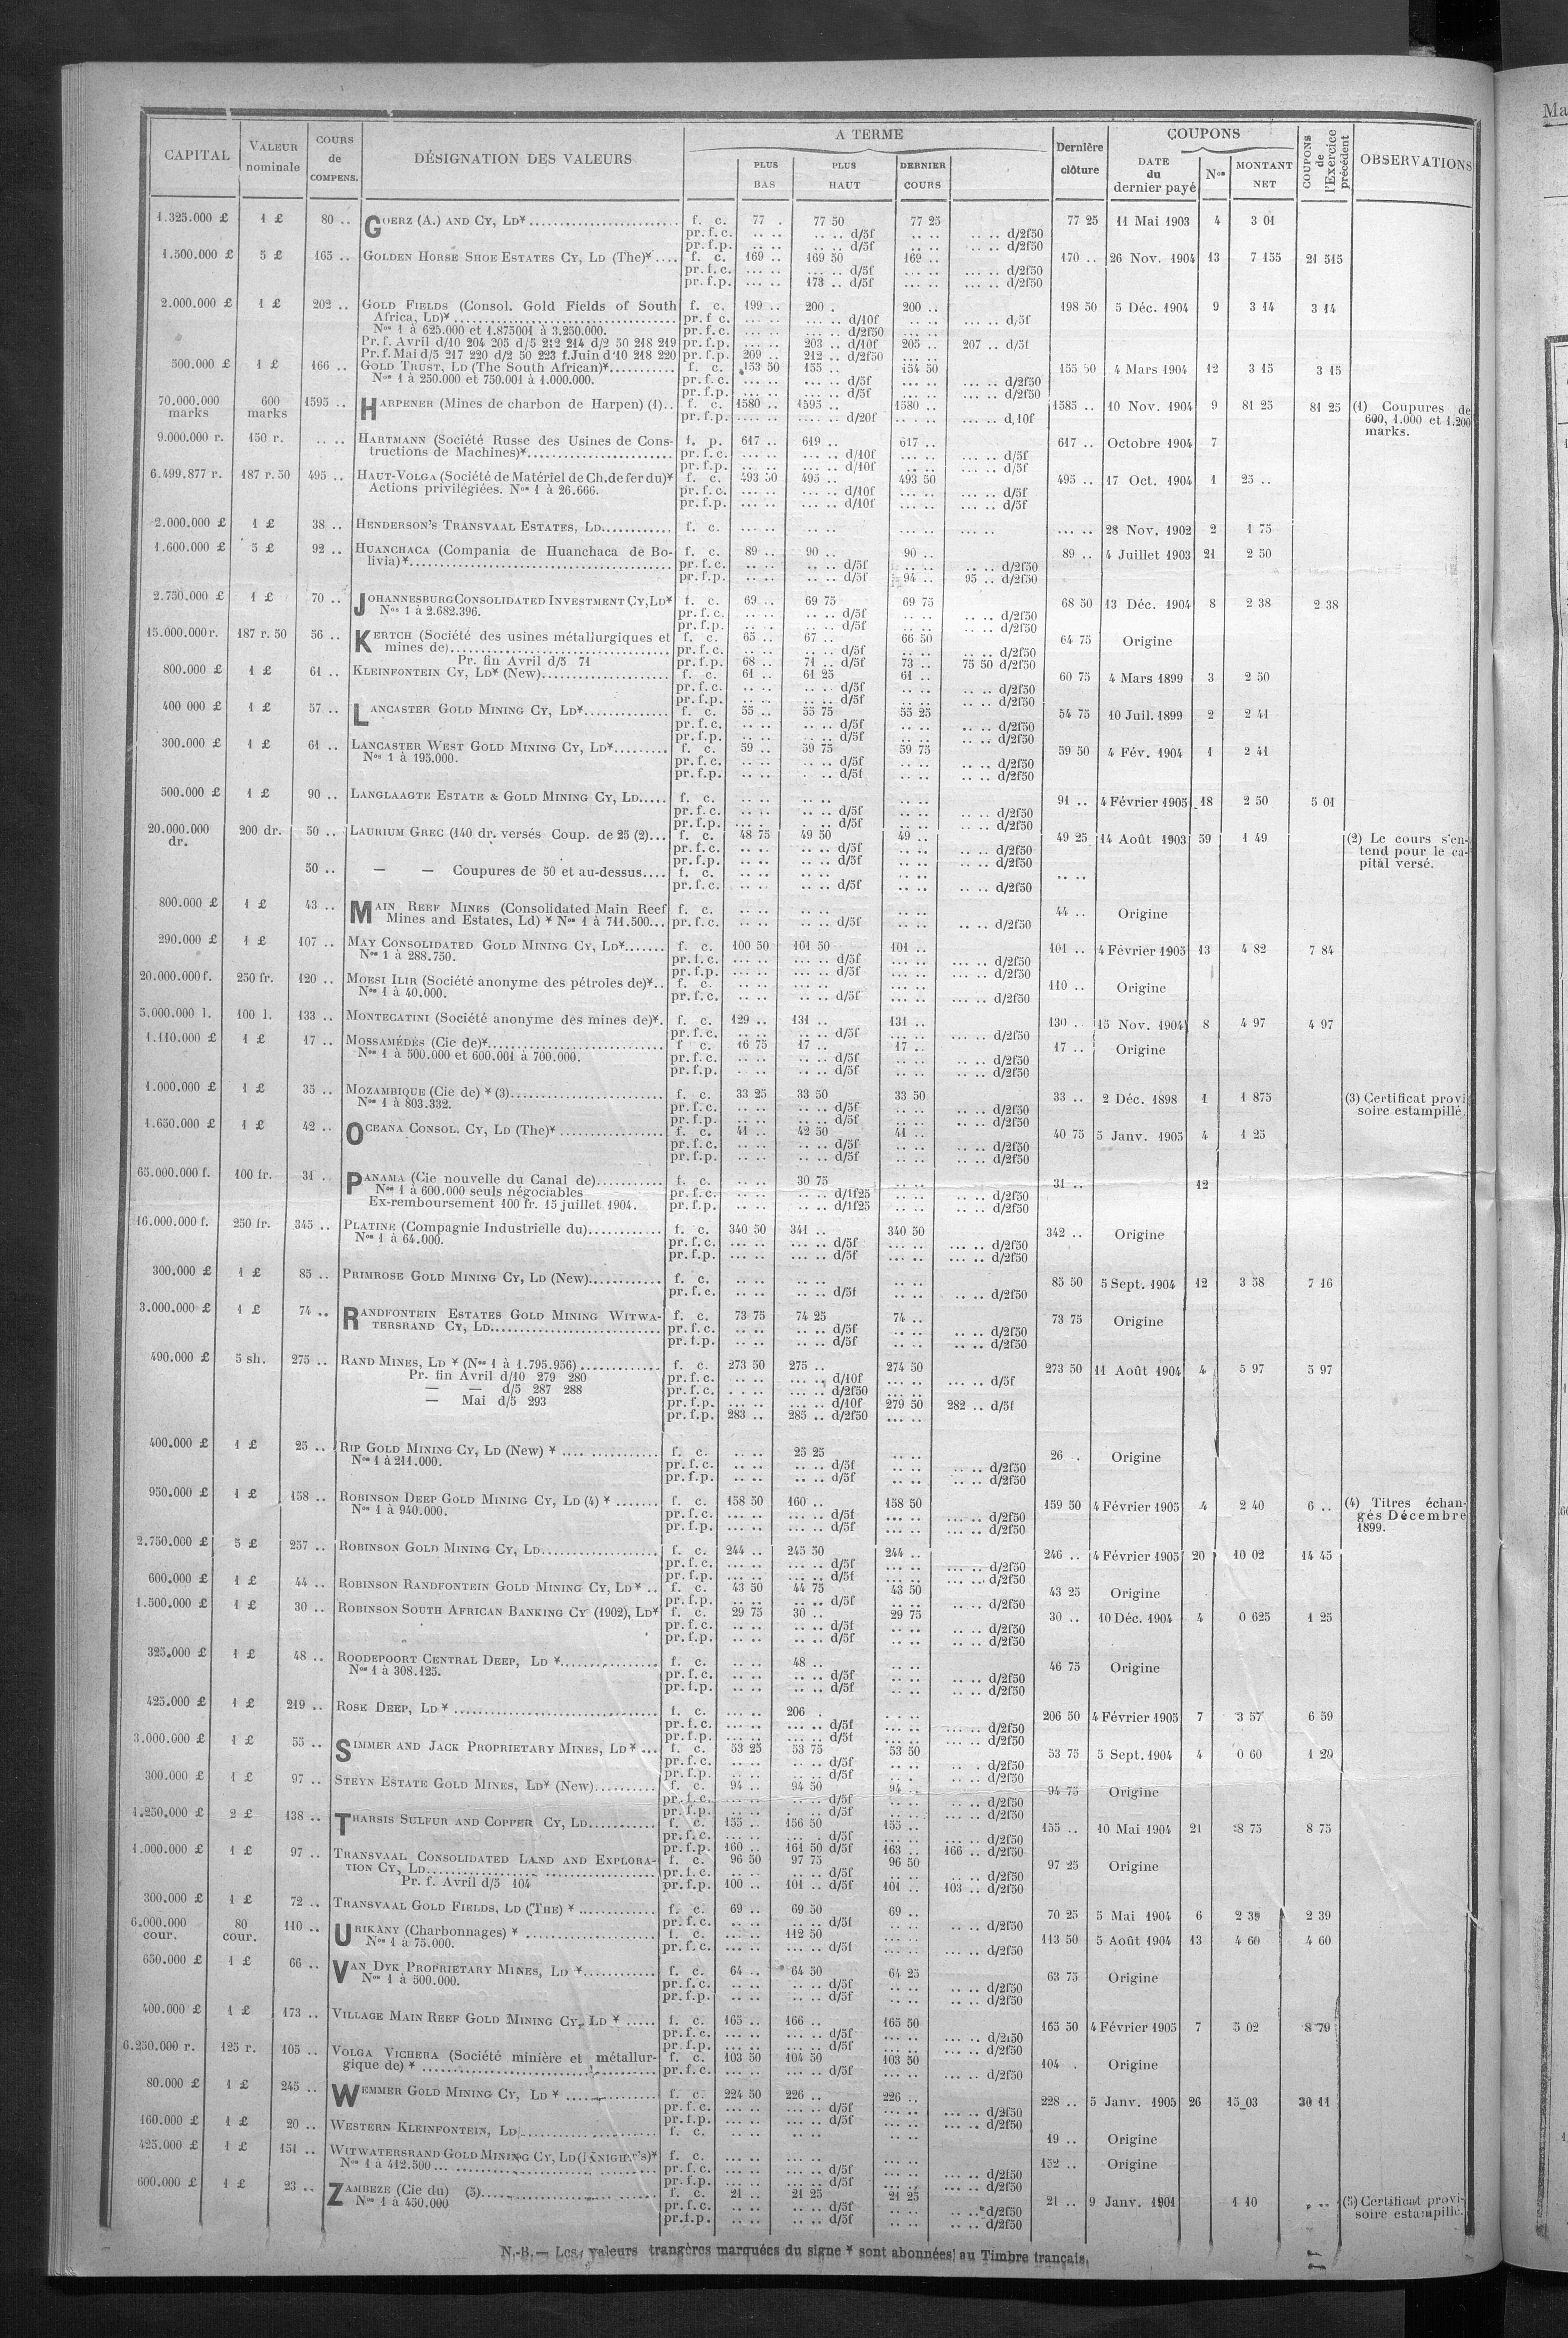 CAPITAL VALEUR nominale COURS de COMPENS. DÉSIGNATION DES VALEURS A TERME PLUS BAS PLUS HAUT DERNIER COURS Dernière clôture COUPONS DATE du dernier payé Nos MONTANT NET COUPONS de l'Exercice précédent OBSERVATIONS
1.325.000 £ 1 £ 80 .. GOERZ (A.) AND CY, LD¥ f. c. 77 . 77 50 77 25 77 25 11 Mai 1903 4 3 01
pr. f. c. .. .. .. .. d/5f .. .. .. .. d/2f50
pr. f. p. .. .. .. .. d/5f .. .. .. .. d/2f50
1.500.000 £ 5 £ 165 .. GOLDEN HORSE SHOE ESTATES CY, LD (The)¥ f. c. 169 .. 169 50 169 .. 170 .. 26 Nov. 1904 13 7 155 21 515
pr. f. c. ... .. ... .. d/5f ... .. ... .. d/2f50
pr. f. p. ... .. 173 .. d/5f ... .. ... .. d/2f50
2.000.000 £ 1 £ 202 .. GOLD FIELDS (Consol. Gold Fields of South f. c. 199 .. 200 . 200 .. 198 50 5 Déc. 1904 9 3 14 3 14
Africa, LD)¥ pr. f. c. ... .. ... .. d/10f ... .. ... .. d/5f
Nos 1 à 625.000 et 1.875001 à 3.250.000. pr. f. c. ... .. ... .. d/2f50 ... ..
Pr. f. Avril d/10 204 205 d/5 212 214 d/2 50 218 219 pr. f. p. ... .. 203 .. d/10f 205 .. 207 .. d/5f
Pr. f. Mai d/5 217 220 d/2 50 223 f. Juin d/10 218 220 pr. f. p. 209 .. 212 .. d/2f50 ... ..
500.000 £ 1 £ 166 .. GOLD TRUST, LD (The South African)¥ f. c. 153 50 155 .. 154 50 155 50 4 Mars 1904 12 3 15 3 15
Nos 1 à 250.000 et 750.001 à 1.000.000. pr. f. c. ... .. ... .. d/5f ... .. ... .. d/2f50
pr. f. p. ... .. ... .. d/5f ... .. ... .. d/2f50
70.000.000 marks 600 marks 1595 .. HARPENER (Mines de charbon de Harpen) (1).. f. c. 1580 .. 1595 .. 1580 .. 1585 .. 10 Nov. 1904 9 81 25 81 25 (1) Coupures de 600, 1.000 et 1.200 marks.
pr. f. p. .... .. .... .. d/20f .... .. d/10f
9.000.000 r. 150 r. .. .. HARTMANN (Société Russe des Usines de Cons- f. p. 617 .. 619 .. 617 .. 617 .. Octobre 1904 7
tructions de Machines)¥ pr. f. c. ... .. ... .. d/10f ... .. ... .. d/5f
pr. f. p. ... .. ... .. d/10f ... .. ... .. d/5f
6.499.877 r. 187 r. 50 495 .. HAUT-VOLGA (Société de Matériel de Ch. de fer du)¥ f. c. 493 50 495 .. 493 50 495 .. 17 Oct. 1904 1 25 ..
Actions privilégiées. Nos 1 à 26.666. pr. f. c. ... .. ... .. d/10f ... .. ... .. d/5f
pr. f. p. ... .. ... .. d/10f ... .. ... .. d/5f
2.000.000 £ 1 £ 38 .. HENDERSON'S TRANSVAAL ESTATES, LD f. c. ... .. ... .. ... .. ... .. 28 Nov. 1902 2 1 75
1.600.000 £ 5 £ 92 .. HUANCHACA (Compania de Huanchaca de Bo- f. c. 89 .. 90 .. 90 .. 89 .. 4 Juillet 1903 21 2 50
livia)¥ pr. f. c. .. .. .. .. d/5f .. .. .. .. d/2f50
pr. f. p. .. .. .. .. d/5f 94 .. 95 .. d/2f50
2.750.000 £ 1 £ 70 .. JOHANNESBURG CONSOLIDATED INVESTMENT CY, LD¥ f. c. 69 .. 69 75 69 75 68 50 13 Déc. 1904 8 2 38 2 38
Nos 1 à 2.682.396. pr. f. c. .. .. .. .. d/5f .. .. .. .. d/2f50
pr. f. p. .. .. .. .. d/5f .. .. .. .. d/2f50
15.000.000 r. 187 r. 50 56 .. KERTCH (Société des usines métallurgiques et f. c. 65 .. 67 .. 66 50 64 75 Origine
mines de) pr. f. c. .. .. .. .. d/5f .. .. .. .. d/2f50
Pr. fin Avril d/5 71 pr. f. p. 68 .. 71 .. d/5f 73 .. 75 50 d/2f50
800.000 £ 1 £ 61 .. KLEINFONTEIN CY, LD¥ (New) f. c. 61 .. 61 25 61 .. 60 75 4 Mars 1899 3 2 50
pr. f. c. .. .. .. .. d/5f .. .. .. .. d/2f50
pr. f. p. .. .. .. .. d/5f .. .. .. .. d/2f50
400 000 £ 1 £ 57 .. LANCASTER GOLD MINING CY, LD¥ f. c. 55 .. 55 75 55 25 54 75 10 Juil. 1899 2 2 41
pr. f. c. .. .. .. .. d/5f .. .. .. .. d/2f50
pr. f. p. .. .. .. .. d/5f .. .. .. .. d/2f50
300.000 £ 1 £ 61 .. LANCASTER WEST GOLD MINING CY, LD¥ f. c. 59 .. 59 75 59 75 59 50 4 Fév. 1904 1 2 41
Nos 1 à 195.000. pr. f. c. .. .. .. .. d/5f .. .. .. .. d/2f50
pr. f. p. .. .. .. .. d/5f .. .. .. .. d/2f50
500.000 £ 1 £ 90 .. LANGLAAGTE ESTATE & GOLD MINING CY, LD f. c. .. .. .. .. .. .. 91 .. 4 Février 1905 18 2 50 5 01
pr. f. c. .. .. .. .. d/5f .. .. .. .. d/2f50
pr. f. p. .. .. .. .. d/5f .. .. .. .. d/2f50
20.000.000 dr. 200 dr. 50 .. LAURIUM GREC (140 dr. versés Coup. de 25 (2)... f. c. 48 75 49 50 49 .. 49 25 14 Août 1903 59 1 49 (2) Le cours s'en- tend pour le ca- pital versé.
pr. f. c. .. .. .. .. d/5f .. .. .. .. d/2f50
pr. f. p. .. .. .. .. d/5f .. .. .. .. d/2f50
50 .. — — Coupures de 50 et au-dessus.... f. c. .. .. .. .. .. .. .. ..
pr. f. c. .. .. .. .. d/5f .. .. .. .. d/2f50
800.000 £ 1 £ 43 .. MAIN REEF MINES (Consolidated Main Reef f. c. .. .. .. .. .. .. 44 .. Origine
Mines and Estates, Ld) ¥ Nos 1 à 711.500... pr. f. c. .. .. .. .. d/5f .. .. .. .. d/2f50
290.000 £ 1 £ 107 .. MAY CONSOLIDATED GOLD MINING CY, LD¥ f. c. 100 50 101 50 101 .. 101 .. 4 Février 1905 13 4 82 7 84
Nos 1 à 288.750. pr. f. c. ... .. ... .. d/5f ... .. ... .. d/2f50
pr. f. p. ... .. ... .. d/5f ... .. ... .. d/2f50
20.000.000 f. 250 fr. 120 .. MOESI ILIR (Société anonyme des pétroles de)¥.. f. c. .. .. .. .. .. .. 110 .. Origine
Nos 1 à 40.000. pr. f. c. ... .. ... .. d/5f ... .. ... .. d/2f50
5.000.000 l. 100 l. 133 .. MONTECATINI (Société anonyme des mines de)¥. f. c. 129 .. 131 .. 131 .. 130 . 15 Nov. 1904 8 4 97 4 97
pr. f. c. ... .. ... .. d/5f ... .. ... .. d/2f50
1.110.000 £ 1 £ 17 .. MOSSAMÉDÈS (Cie de)¥ f c. 16 75 17 .. 17 .. 17 .. Origine
Nos 1 à 500.000 et 600.001 à 700.000. pr. f. c. .. .. .. .. d/5f .. .. .. .. d/2f50
pr. f. p. .. .. .. .. d/5f .. .. .. .. d/2f50
1.000.000 £ 1 £ 35 .. MOZAMBIQUE (Cie de) ¥ (3) f. c. 33 25 33 50 33 50 33 .. 2 Déc. 1898 1 1 875 (3) Certificat provi soire estampillé.
Nos 1 à 803.332. pr. f. c. .. .. .. .. d/5f .. .. .. .. d/2f50
pr. f. p. .. .. .. .. d/5f .. .. .. .. d/2f50
1.650.000 £ 1 £ 42 .. OCEANA CONSOL. CY, LD (The)¥ f. c. 41 .. 42 50 41 .. 40 75 5 Janv. 1905 4 1 25
pr. f. c. .. .. .. .. d/5f .. .. .. .. d/2f50
pr. f. p. .. .. .. .. d/5f .. .. .. .. d/2f50
65.000.000 f. 100 fr. 31 .. PANAMA (Cie nouvelle du Canal de) f. c. .. .. 30 75 .. .. 31 .. 12
Nos 1 à 600.000 seuls négociables pr. f. c. .. .. .. .. d/1f25 .. .. .. .. d/2f50
Ex-remboursement 100 fr. 15 juillet 1904. pr. f. p. .. .. .. .. d/1f25 .. .. .. .. d/2f50
16.000.000 f. 250 fr. 345 .. PLATINE (Compagnie Industrielle du) f. c. 340 50 341 .. 340 50 342 .. Origine
Nos 1 à 64.000. pr. f. c. ... .. ... .. d/5f ... .. ... .. d/2f50
pr. f. p. ... .. ... .. d/5f ... .. ... .. d/2f50
300.000 £ 1 £ 85 .. PRIMROSE GOLD MINING CY, LD (New) f. c. .. .. .. .. .. .. 85 50 5 Sept. 1904 12 3 58 7 16
pr. f. c. .. .. .. .. d/5f .. .. .. .. d/2f50
3.000.000 £ 1 £ 74 .. RANDFONTEIN ESTATES GOLD MINING WITWA- f. c. 73 75 74 25 74 .. 73 75 Origine
TERSRAND CY, LD pr. f. c. .. .. .. .. d/5f .. .. .. .. d/2f50
pr. f. p. .. .. .. .. d/5f .. .. .. .. d/2f50
490.000 £ 5 sh. 275 .. RAND MINES, LD ¥ (Nos 1 à 1.795.956) f. c. 273 50 275 .. 274 50 273 50 11 Août 1904 4 5 97 5 97
Pr. fin Avril d/10 279 280 pr. f. c. ... .. ... .. d/10f ... .. ... .. d/5f
— — d/5 287 288 pr. f. c. ... .. ... .. d/2f50 ... ..
— Mai d/5 293 pr. f. p. ... .. ... .. d/10f 279 50 282 .. d/5f
pr. f. p. 283 .. 285 .. d/2f50 ... ..
400.000 £ 1 £ 25 .. RIP GOLD MINING CY, LD (New) ¥ f. c. .. .. 25 25 .. .. 26 . Origine
Nos 1 à 211.000. pr. f. c. .. .. .. .. d/5f .. .. .. .. d/2f50
pr. f. p. .. .. .. .. d/5f .. .. .. .. d/2f50
950.000 £ 1 £ 158 .. ROBINSON DEEP GOLD MINING CY, LD (4) ¥ f. c. 158 50 160 .. 158 50 159 50 4 Février 1905 4 2 40 6 .. (4) Titres échan- gés Décembre 1899.
Nos 1 à 940.000. pr. f. c. ... .. ... .. d/5f ... .. ... .. d/2f50
pr. f. p. ... .. ... .. d/5f ... .. ... .. d/2f50
2.750.000 £ 5 £ 257 .. ROBINSON GOLD MINING CY, LD f. c. 244 .. 245 50 244 .. 246 .. 4 Février 1905 20 10 02 14 45
pr. f. c. ... .. ... .. d/5f ... .. ... .. d/2f50
pr. f. p. ... .. ... .. d/5f ... .. ... .. d/2f50
600.000 £ 1 £ 44 .. ROBINSON RANDFONTEIN GOLD MINING CY, LD¥ .. f. c. 43 50 44 75 43 50 43 25 Origine
pr. f. p. .. .. .. .. d/5f .. .. .. .. d/2f50
1.500.000 £ 1 £ 30 .. ROBINSON SOUTH AFRICAN BANKING CY (1902), LD¥ f. c. 29 75 30 .. 29 75 30 .. 10 Déc. 1904 4 0 625 1 25
pr. f. c. .. .. .. .. d/5f .. .. .. .. d/2f50
pr. f. p. .. .. .. .. d/5f .. .. .. .. d/2f50
325.000 £ 1 £ 48 .. ROODEPOORT CENTRAL DEEP, LD ¥ f. c. .. .. 48 .. .. .. 46 75 Origine
Nos 1 à 308.125. pr. f. c. .. .. .. .. d/5f .. .. .. .. d/2f50
pr. f. p. .. .. .. .. d/5f .. .. .. .. d/2f50
425.000 £ 1 £ 219 .. ROSE DEEP, LD ¥ f. c. ... .. 206 . 206 50 4 Février 1905 7 3 57 6 59
pr. f. c. ... .. ... .. d/5f ... .. ... .. d/2f50
pr. f. p. ... .. ... .. d/5f ... .. ... .. d/2f50
3.000.000 £ 1 £ 55 .. SIMMER AND JACK PROPRIETARY MINES, LD ¥ ... f. c. 53 25 53 75 53 50 53 75 5 Sept. 1904 4 0 60 1 20
pr. f. c. .. .. .. .. d/5f .. .. .. .. d/2f50
pr. f. p. .. .. .. .. d/5f .. .. .. .. d/2f50
300.000 £ 1 £ 97 .. STEYN ESTATE GOLD MINES, LD¥ (New) f. c. 94 .. 94 50 94 .. 94 75 Origine
pr. f. c. ... .. ... .. d/5f ... .. ... .. d/2f50
pr. f. p. .. .. .. .. d/5f .. .. .. .. d/2f50
1.250.000 £ 2 £ 138 .. THARSIS SULFUR AND COPPER CY, LD f. c. 155 .. 156 50 155 .. 155 .. 10 Mai 1904 21 8 75 8 75
pr. f. c. ... .. ... .. d/5f ... .. ... .. d/2f50
pr. f. p. 160 .. 161 50 d/5f 163 .. 166 .. d/2f50
1.000.000 £ 1 £ 97 .. TRANSVAAL CONSOLIDATED LAND AND EXPLORA- f. c. 96 50 97 75 96 50 97 25 Origine
TION CY, LD pr. f. c. .. .. .. .. d/5f .. .. .. .. d/2f50
Pr. f. Avril d/5 104 pr. f. p. 100 .. 101 .. d/5f 101 .. 103 .. d/2f50
300.000 £ 1 £ 72 .. TRANSVAAL GOLD FIELDS, LD (THE) ¥ f. c. 69 .. 69 50 69 .. 70 25 5 Mai 1904 6 2 39 2 39
pr. f. c. .. .. .. .. d/5f .. .. .. .. d/2f50
6.000.000 cour. 80 cour. 110 .. URIKANY (Charbonnages) ¥ f. c. ... .. 112 50 ... .. 113 50 5 Août 1904 13 4 60 4 60
Nos 1 à 75.000. pr. f. c. ... .. ... .. d/5f ... .. ... .. d/2f50
650.000 £ 1 £ 66 .. VAN DYK PROPRIETARY MINES, LD ¥ f. c. 64 .. 64 50 64 25 63 75 Origine
Nos 1 à 500.000. pr. f. c. .. .. .. .. d/5f .. .. .. .. d/2f50
pr. f. p. .. .. .. .. d/5f .. .. .. .. d/2f50
400.000 £ 1 £ 173 .. VILLAGE MAIN REEF GOLD MINING CY, LD ¥ f. c. 165 .. 166 .. 165 50 165 50 4 Février 1905 7 5 02 8 79
pr. f. c. ... .. ... .. d/5f ... .. ... .. d/2f50
pr. f. p. ... .. ... .. d/5f ... .. ... .. d/2f50
6.250.000 r. 125 r. 105 .. VOLGA VICHERA (Société minière et métallur- f. c. 103 50 104 50 103 50 104 . Origine
gique de) ¥ pr. f. c. ... .. ... .. d/5f ... .. ... .. d/2f50
80.000 £ 1 £ 245 .. WEMMER GOLD MINING CY, LD ¥ f. c. 224 50 226 .. 226 .. 228 .. 5 Janv. 1905 26 15 03 30 11
pr. f. c. ... .. ... .. d/5f ... .. ... .. d/2f50
pr. f. p. ... .. ... .. d/5f ... .. ... .. d/2f50
160.000 £ 1 £ 20 .. WESTERN KLEINFONTEIN, LD f. c. .. .. .. .. .. .. 19 .. Origine
425.000 £ 1 £ 151 .. WITWATERSRAND GOLD MINING CY, LD (KNIGHT'S)¥ f. c. ... .. ... .. ... .. 152 .. Origine
Nos 1 à 412.500 pr. f. c. ... .. ... .. d/5f ... .. ... .. d/2f50
pr. f. p. ... .. ... .. d/5f ... .. ... .. d/2f50
600.000 £ 1 £ 23 .. ZAMBEZE (Cie du) (5) f. c. 21 .. 21 25 21 25 21 .. 9 Janv. 1901 1 10 .. (5) Certificat provi- soire estampillé.
Nos 1 à 450.000 pr. f. c. .. .. .. .. d/5f .. .. .. .. d/2f50
pr. f. p. .. .. .. .. d/5f .. .. .. .. d/2f50
N.-B. — Les valeurs trangères marquées du signe ¥ sont abonnées au Timbre français.
Ma